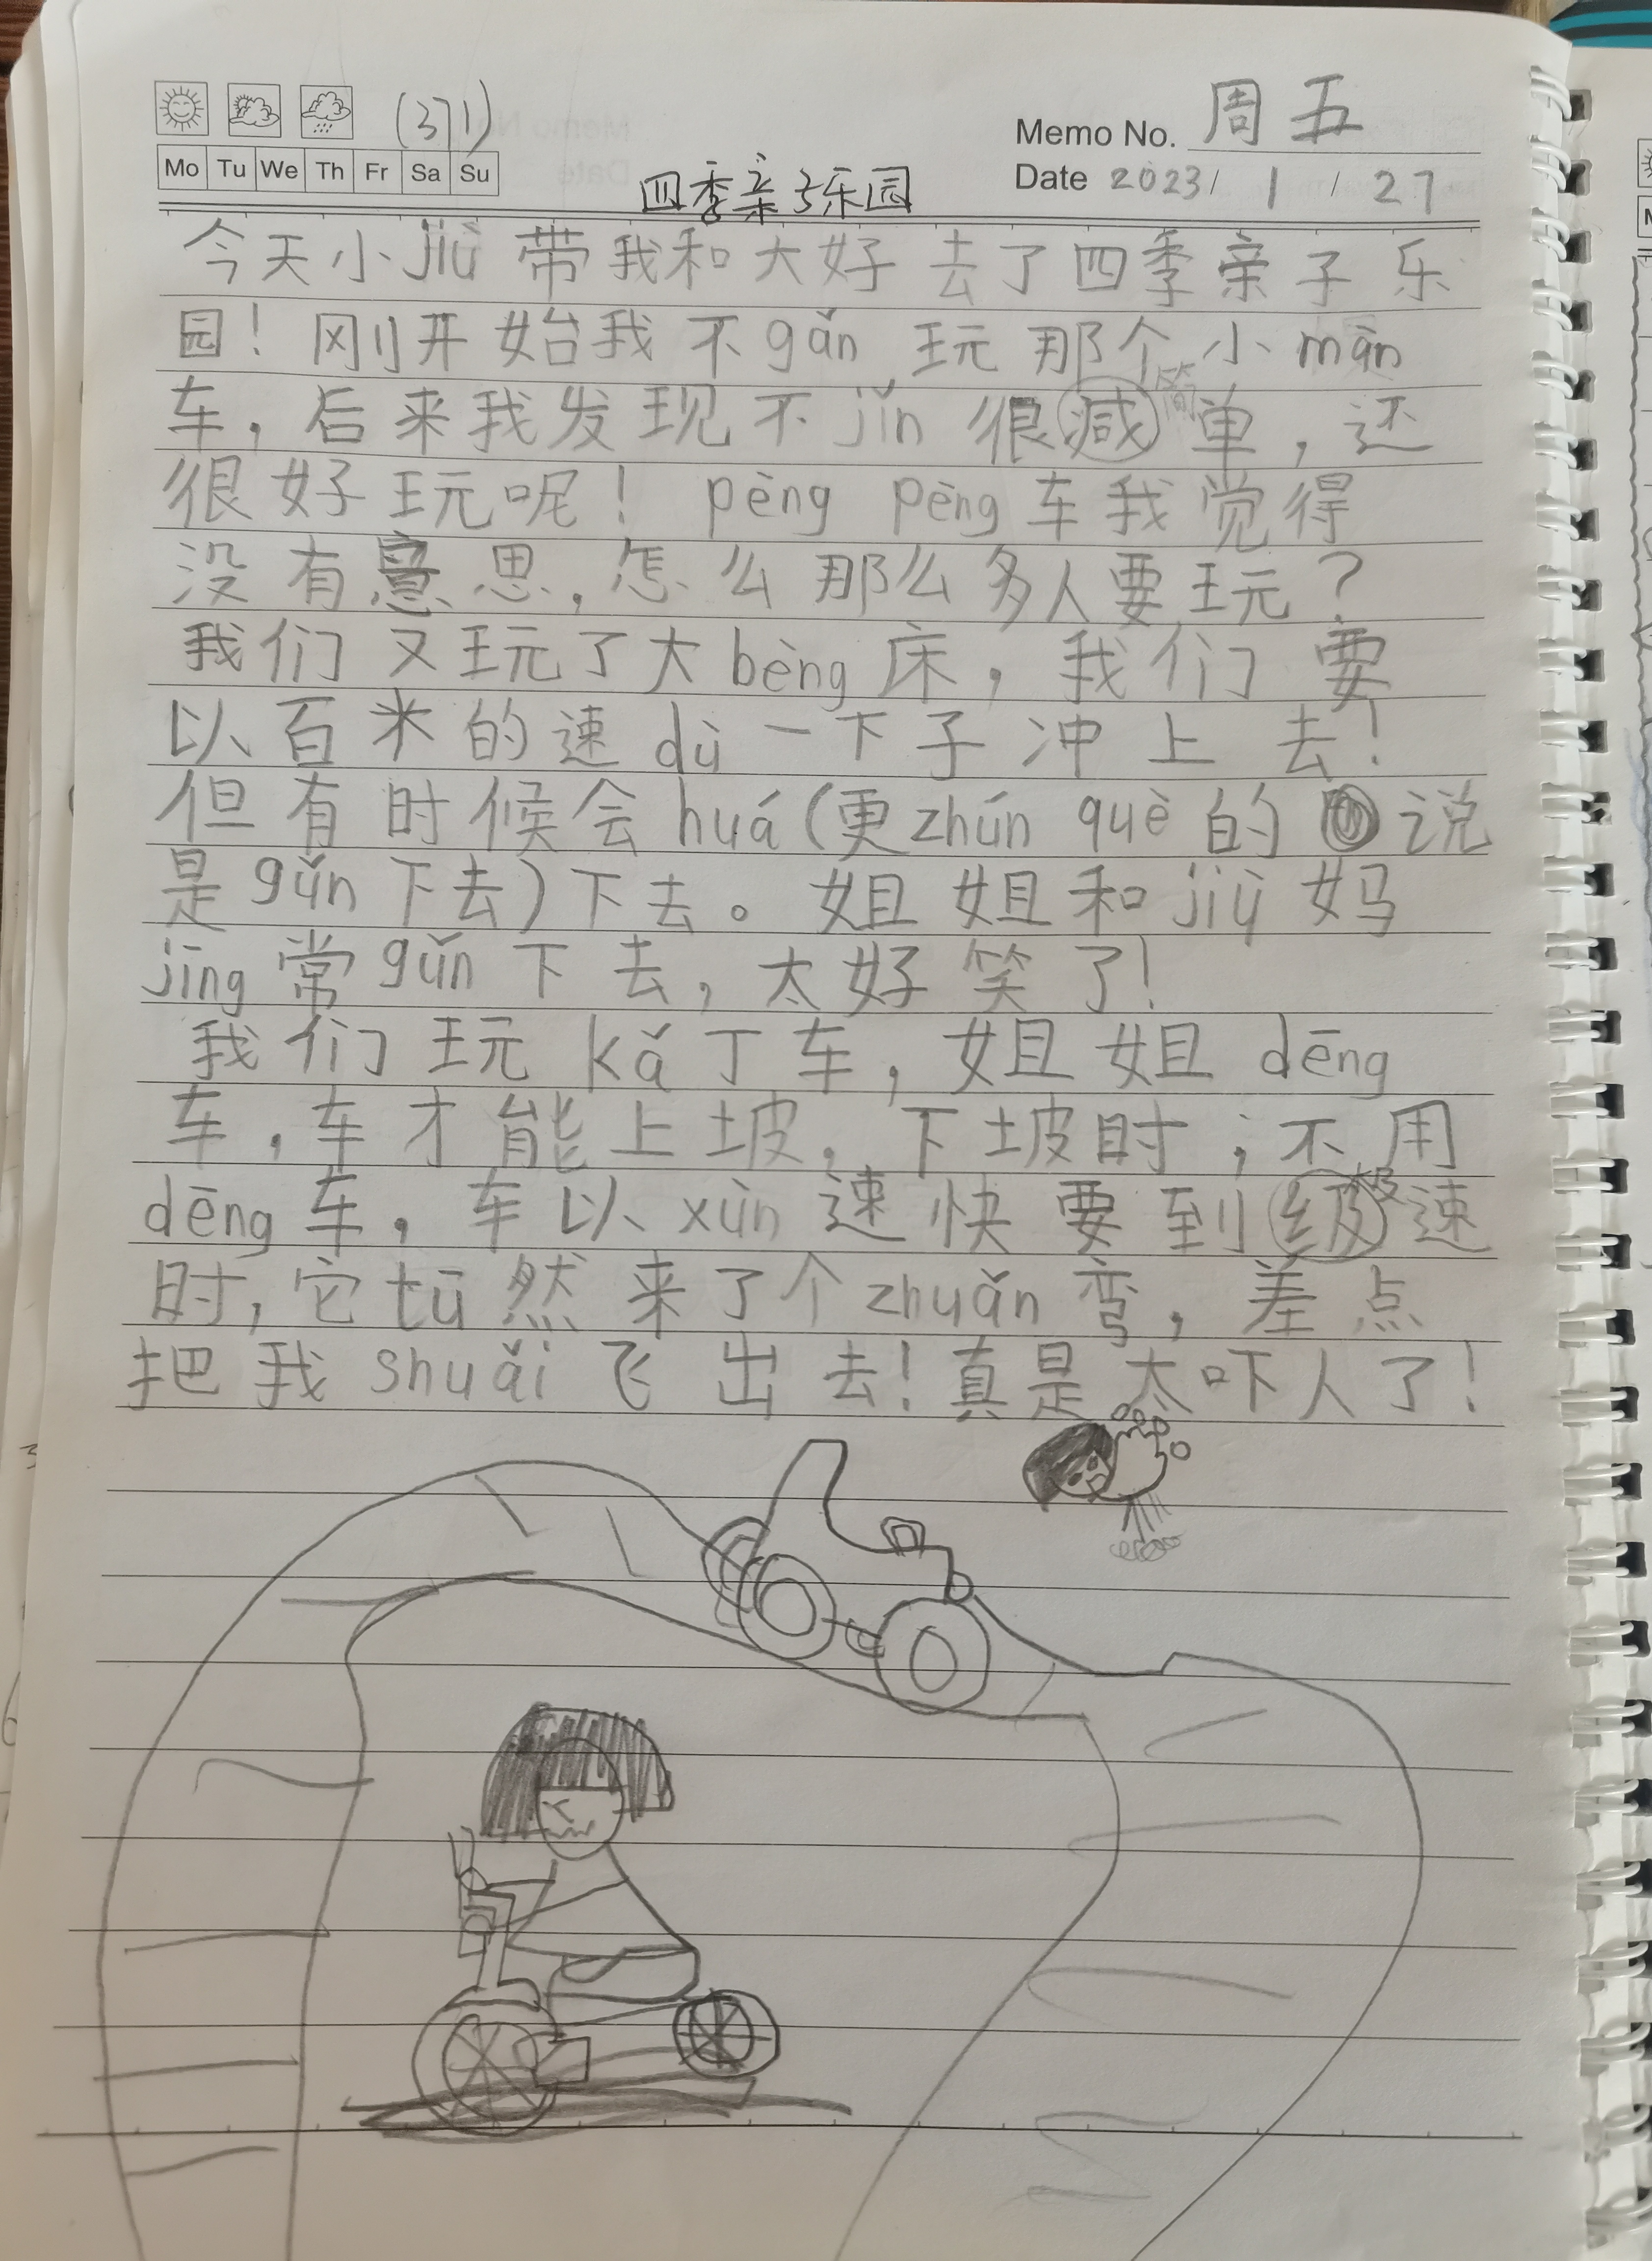 (371)
Memo No. 周五
Mo Tu We Th Fr Sa Su
Date 2023/ 1 / 27
四季亲子乐园
今天小jiù带我和大好去了四季亲子乐
园！刚开始我不gǎn玩那个小màn
车，后来我发现不jǐn很减简单，还
很好玩呢！pèng pèng车我觉得
没有意思，怎么那么多人要玩？
我们又玩了大bèng床，我们要
以百米的速dù一下子冲上去！
但有时候会huá(更zhǔn què的说
是gǔn下去)下去。姐姐和jiù妈
jīng常gǔn下去，太好笑了！
我们玩kǎ丁车，姐姐dēng
车，车才能上坡，下坡时；不用
dēng车，车以xùn速快要到级速
时，它tū然来了个zhuǎn弯，差点
把我shuǎi飞出去！真是太吓人了！